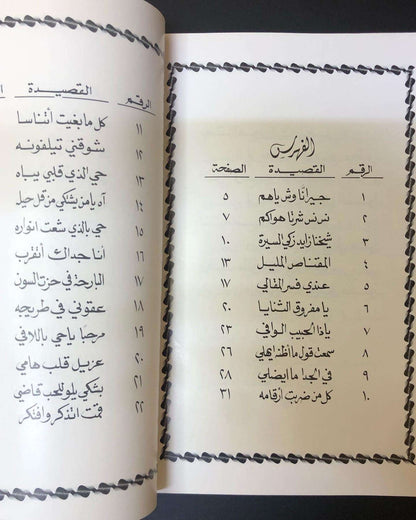 الفهرس
الرقم القصيدة الصفحة
١ جيرانا وش ياهم ٥
٢ نرنس شرتا هواكم ٧
٣ شيخنا زايد زكي السيرة ١٠
٤ المقناص المليل ١٣
٥ عندي فسر المقالي ١٧
٦ يا مفروق الثنايا ٢٠
٧ ياذا الحبيب الوافي ٢٣
٨ سمعت قول ما أظنه ايهلي ٢٦
٩ في الجدا ما ايضلي ٢٨
١٠ كل من ضربت ارقامه ٣١
الرقم القصيدة
١١ كل ما بغيت أتناسا
١٢ شوقني تيلفونه
١٣ حي الذي قلبي يباه
١٤ آه يا من يشتكي من قل حيل
١٥ حي بالذي شعت انواره
١٦ أنا جداك أتقرب
١٧ البارحة في حزت السون
١٨ عقوني في طريجه
١٩ مرحبا يا حي باللافي
٢٠ عزيل قلب هامي
٢١ بشكي يلو للحب قاضي
٢٢ قمت اتذكر وافتكر